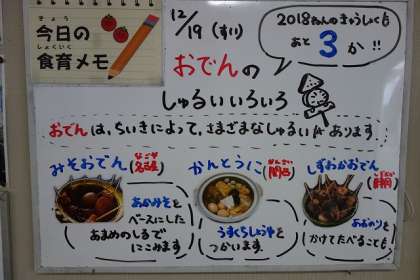 きょう
今日の
しょくいく
食育メモ
12/19(すい)
2018ねんのきゅうしょくも
あと3か!!
おでんの
しゅるいいろいろ
おでんは、ちいきによって、さまざまなしゅるいがあります
みそおでん
なごや
(名古屋)
あかみそを
ベースにした
あまめのしるで
にこみます
かんとうに
かんさい
(関西)
うすくちしょうゆを
つかいます。
しずおかおでん
しずおか
(静岡)
あおのりを
かけてたべることも